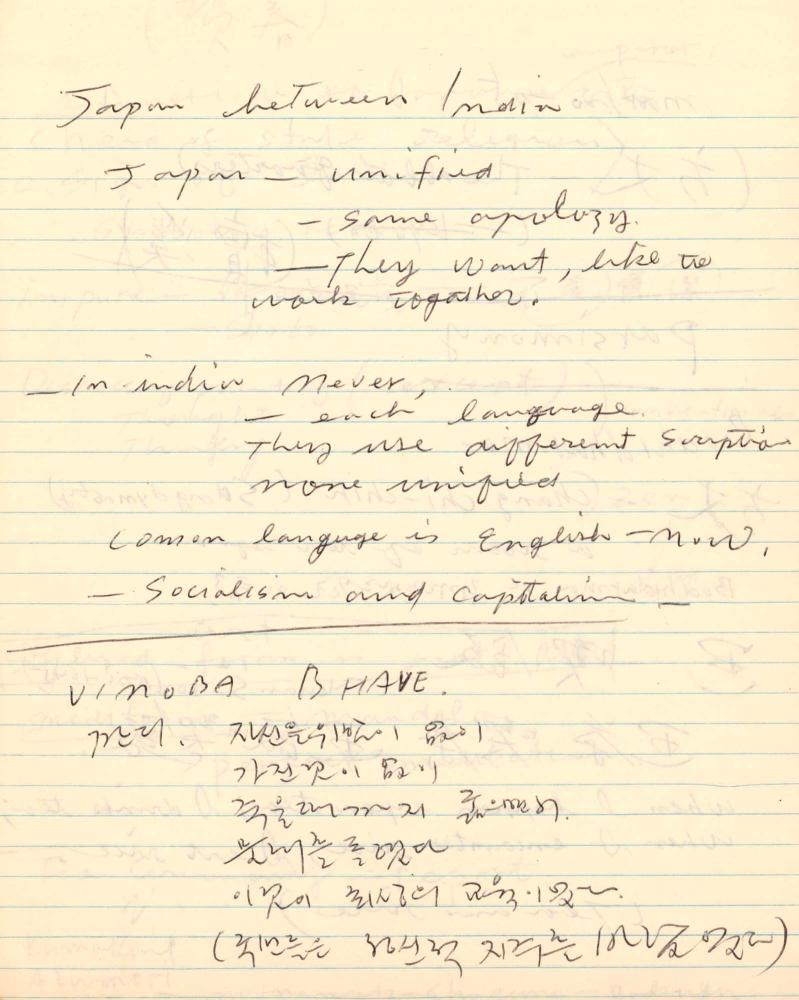 Japan between India
Japan — unified
— same apology.
— They want, like to
work together.
— In india never,
— each language.
They use different scription
none unified
Comon languge is English — now,
— Socialism and capitalism —
VINOBA BHAVE.
깐디. 자신을위함이 없이
가진것이 없이
죽을때까지
물레를돌렸다
이것이 최상의 교육이었다.